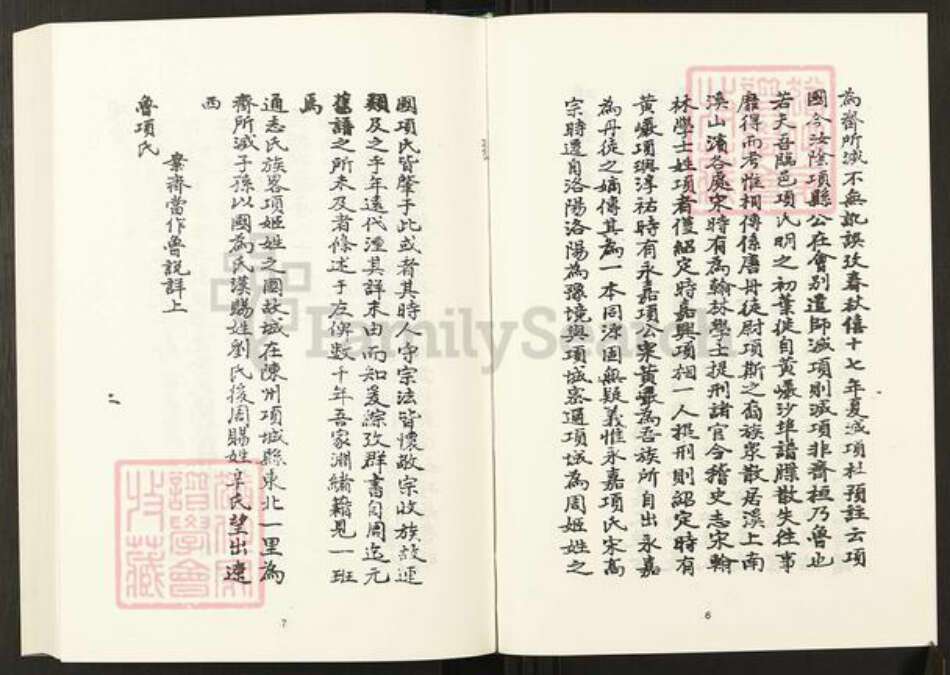 為齊所滅不無訛誤攷春秋僖十七年夏滅項杜預註云項
國今汝陰項縣公在會別遣師滅項則滅項非齊桓乃魯也
若夫吾臨邑項氏明之初葉徙自黃巖沙埠譜牒散失往事
靡得而考惟相傳係唐丹徒尉項斯之裔族眾散居溪上南
溪山濱各處宋時有為翰林學士提刑諸官今稽史志宋翰
林學士姓項者僅紹定時嘉興項相一人提刑則紹定時有
黃巖項璵淳祐時有永嘉項公寀黃巖為吾族所自出永嘉
為丹徒之嫡傳其為一本同源固無疑義惟永嘉項氏宋高
宗時遷自洛陽洛陽為豫境與項城密邇項城為周姬姓之
6
國項氏皆肇于此或者其時人守宗法皆懷敬宗收族故遞
類及之乎年遠代湮其詳末由而知爰綜攷群書自周迄元
舊譜之所未及者條述于左俾數千年吾家淵緒藉見一班
焉
通志氏族畧項姬姓之國故城在陳州項城縣東北一里為
齊所滅子孫以國為氏漢賜姓劉氏後周賜姓辛氏望出遼
西
案齊當作魯說詳上
魯項氏
二
7
FamilySearch
譜學會
收藏